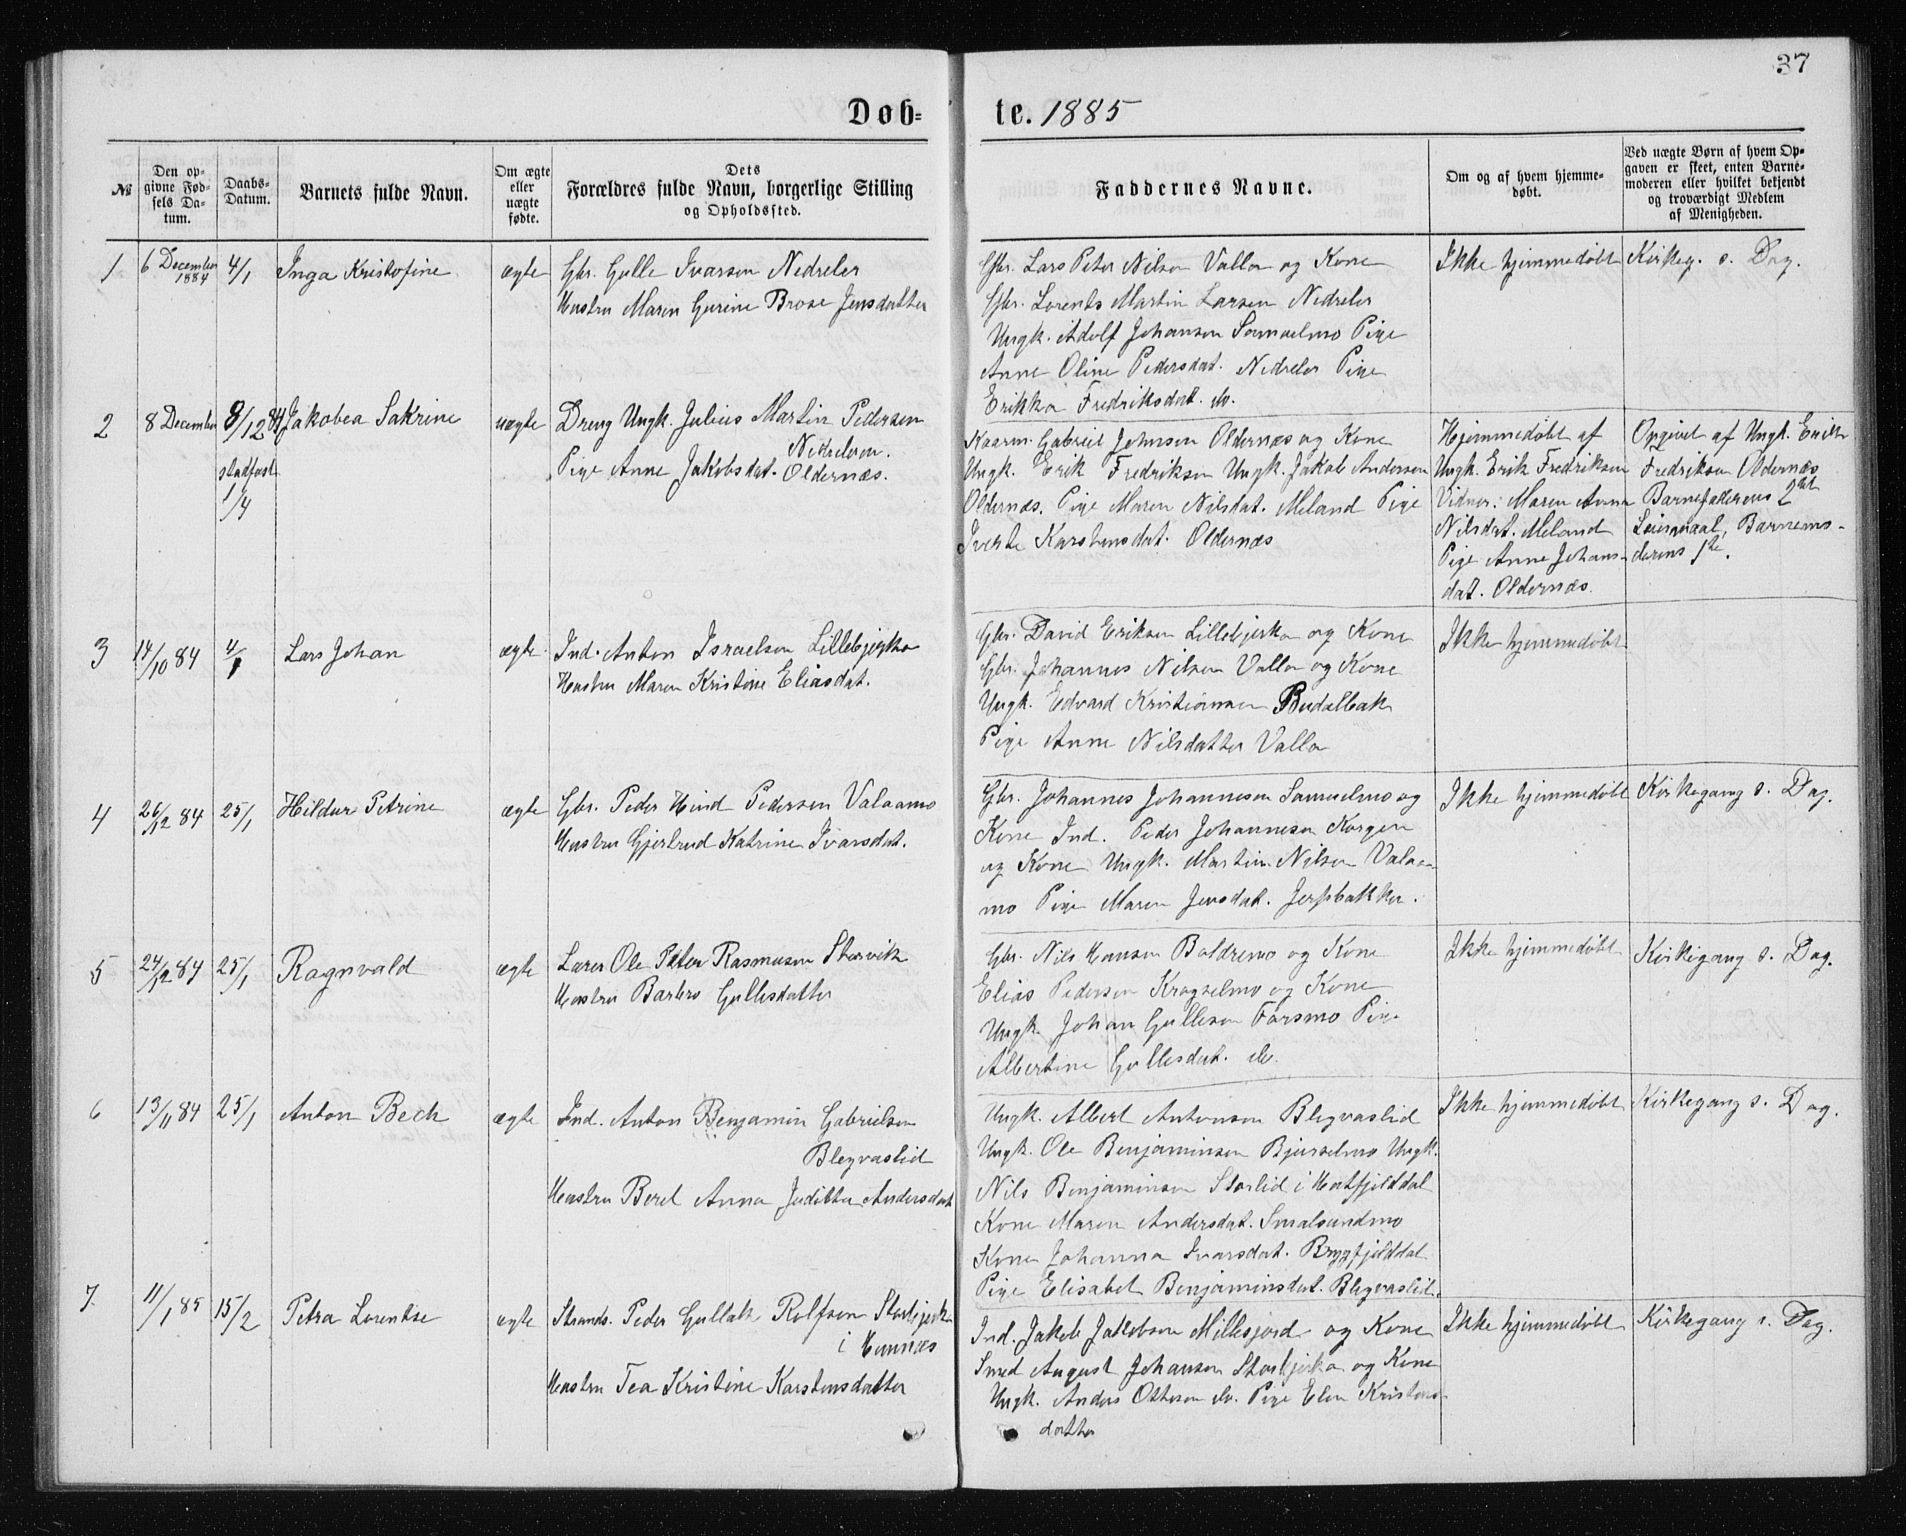 37
Døb= te. 1885
№
Den op-
givne Fød-
sels Da-
tum.
Daabs-
Datum.
Barnets fulde Navn.
Om ægte
eller
uægte
fødte.
Dets
Forældres fulde Navn, borgerlige Stilling
og Opholdssted.
Faddernes Navne.
Om og af hvem hjemme-
døbt.
Ved uægte Børn af hvem Op-
gaven er skeet, enten Barne-
moderen eller hvilket bekjendt
og troværdigt Medlem
af Menigheden.
1
6 December
1884
4/1
Inga Kristofine
ægte
Gbr. Gulle Ivarsen Nedreler
Hustru Maren Gurine Brose Jensdatter
Gbr. Lars Peter Nilsen Valla og Kone
Gbr. Lorents Martin Larsen Nedreler
Ungk. Adolf Johansen Samuelmo Pige
Anne Oline Pedersdat. Nedreler Pige
Erikka Fredriksdat. do.
Ikke hjemmedøbt
Kirkeg. s. Dag.
2
8 December
8/12 84
stadfæst
1/4
Jakobea Sakrine
uægte
Dreng Ungk. Julius Martin Pedersen
Nedreleren.
Pige Anne Jakobsdat. Oldernæs.
Kaarm. Gabriel Johnsen Oldernæs og Kone
Ungk. Erik Fredriksen Ungk. Jakob Andersen
Oldernæs. Pige Maren Nilsdat. Meland Pige
Karstensdat. Oldernæs
Hjemmedøbt af
Ungk. Erik Fredriksen
Vidner: Maren Anna
Nilsdat. Meland
Pige Anne Johans-
dat. Oldernæs.
Opgivet af Ungk. Erik
Fredriksen Oldernæs
Barnefaderens 2det
Leiermaal, Barnemo-
derens 1ste.
3
14/10 84
4/1
Lars Johan
ægte
Ind. Anton Israelsen Lillebjerka
Hustru Maren Kristine Eliasdat.
Gbr. David Eriksen Lillebjerka og Kone
Gbr. Johannes Nilsen Valla og Kone
Ungk. Edvard Kristiansen Budalbak
Pige Anne Nilsdatter Valla
Ikke hjemmedøbt
4
26/12 84
25/1
Hildur Petrine
ægte
Gbr. Peder Hind Pedersen Valaamo
Hustru Gjertrud Katrine Ivarsdat.
Gbr. Johannes Johannesen Samuelmo og
Kone Ind. Peder Johannesen Korgen
og Kone Ungk. Martin Nilsen Valaa-
mo Pige Maren Jensdat. Jerpbakken.
Ikke hjemmedøbt
Kirkegang s. Dag.
5
24/12 84
25/1
Ragnvald
ægte
Lærer Ole Peter Rasmusen Storvik
Hustru Barbro Gullesdatter
Gbr. Nils Hansen Baldremo og Kone
Elias Pedersen Kragselmo og Kone
Ungk. Johan Gullesen Forsmo Pige
Albertine Gullesdat. do.
Ikke hjemmedøbt
Kirkegang s. Dag.
6
13/11 84
25/1
Anton Bech
ægte
Ind. Anton Benjamin Gabrielsen
Blegvaslid
Hustru Beret Anna Juditta Andersdat
Ungk. Albert Antonsen Blegvaslid
Ungk. Ole Benjaminsen Bjurselmo Ungk.
Nils Benjaminsen Storlid i Hatfjelddal
Kone Maren Andersdat. Smalsundmo
Kone Johanna Ivarsdat. Brygfjelddal
Pige Elisabet Benjaminsdat. Blegvaslid.
Ikke hjemmedøbt
Kirkegang s. Dag.
7.
11/1 85
15/2
Petra Lorentse
ægte
Strands. Peder Gullak Rolfsen Storbjerka
i Hemnæs
Hustru Tea Kristine Karstensdatter
Ind. Jakob Jakobsen Millesjord og Kone
Smed August Johansen Storbjerka og Kone
Ungk. Anders Ottesen do. Pige Elen Kristens-
datter
Ikke hjemmedøbt
Kirkegang s. Dag.